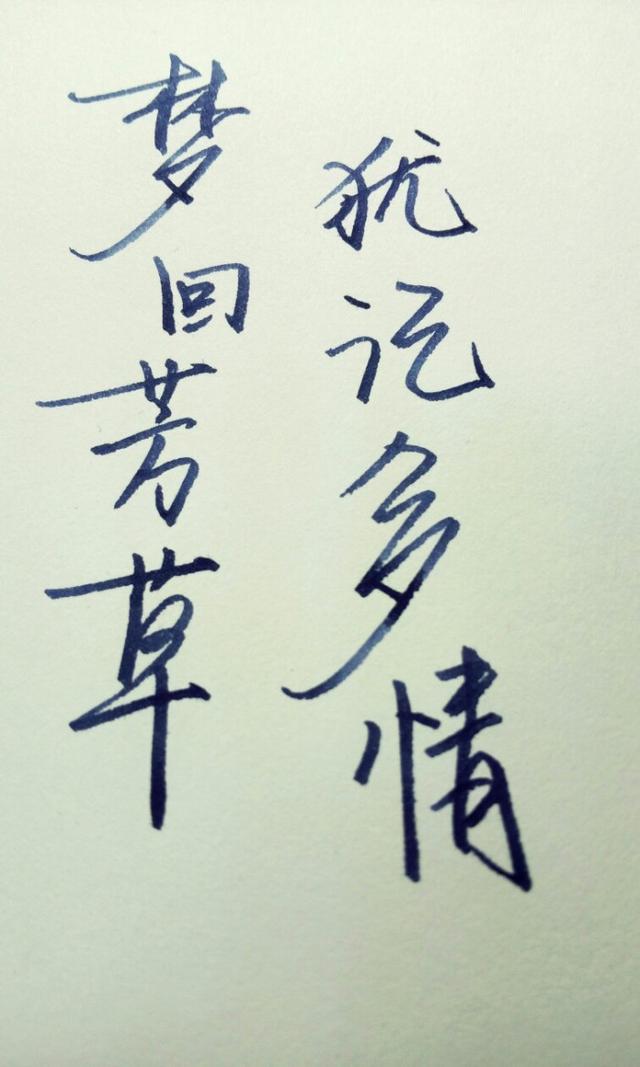 梦回芳草
犹记多情